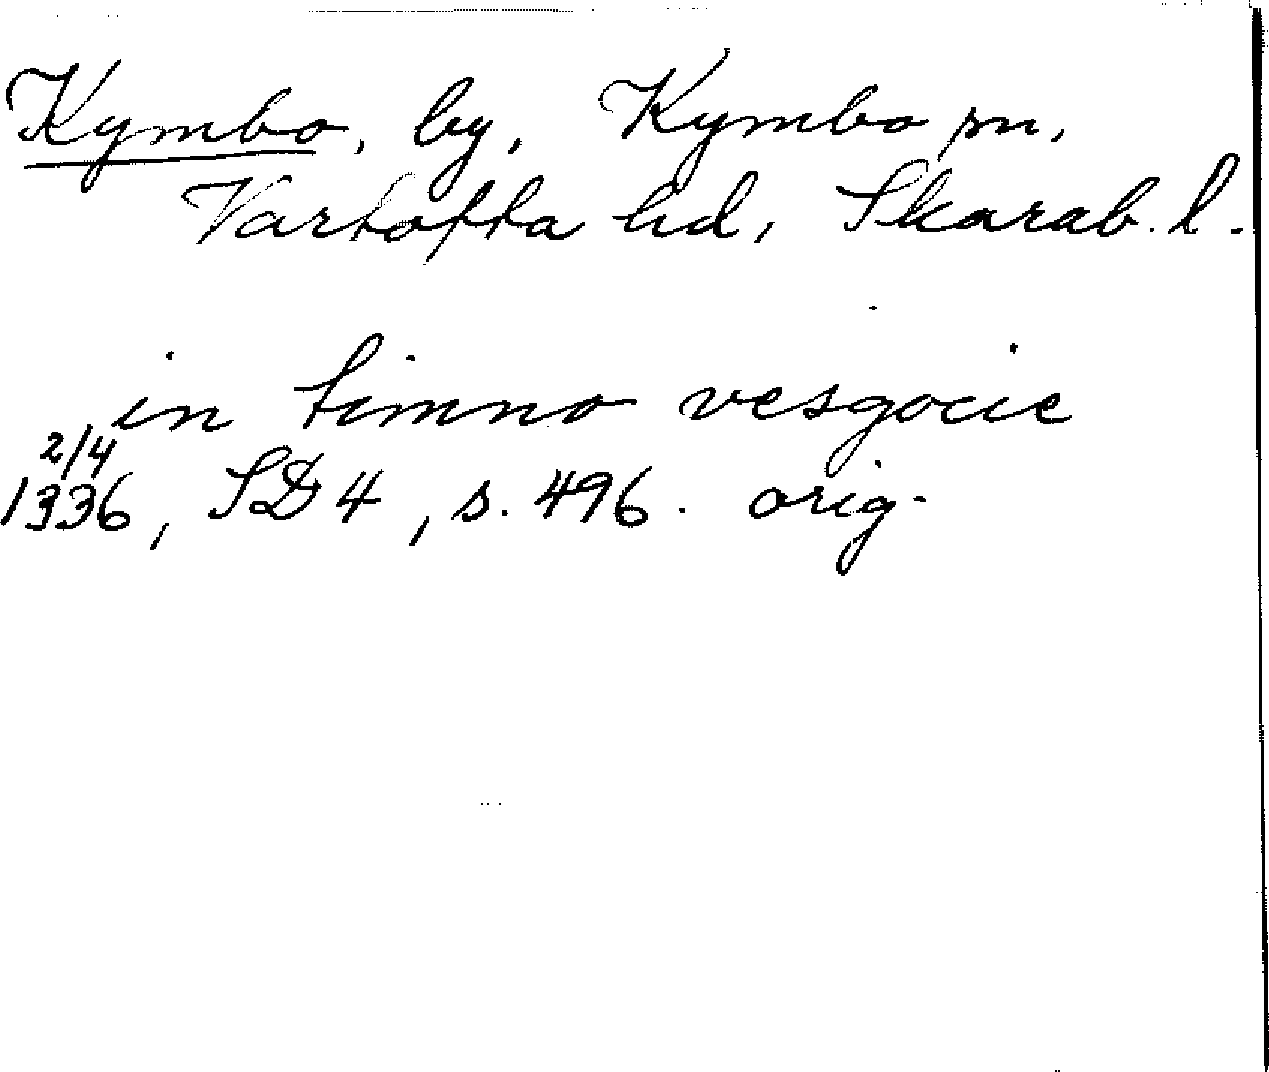 Kymbo, by, Kymbo sn,
Vartofta hd, Skarab. l.
in timno vesgocie
2/4
1336, SD 4, s. 496. orig.